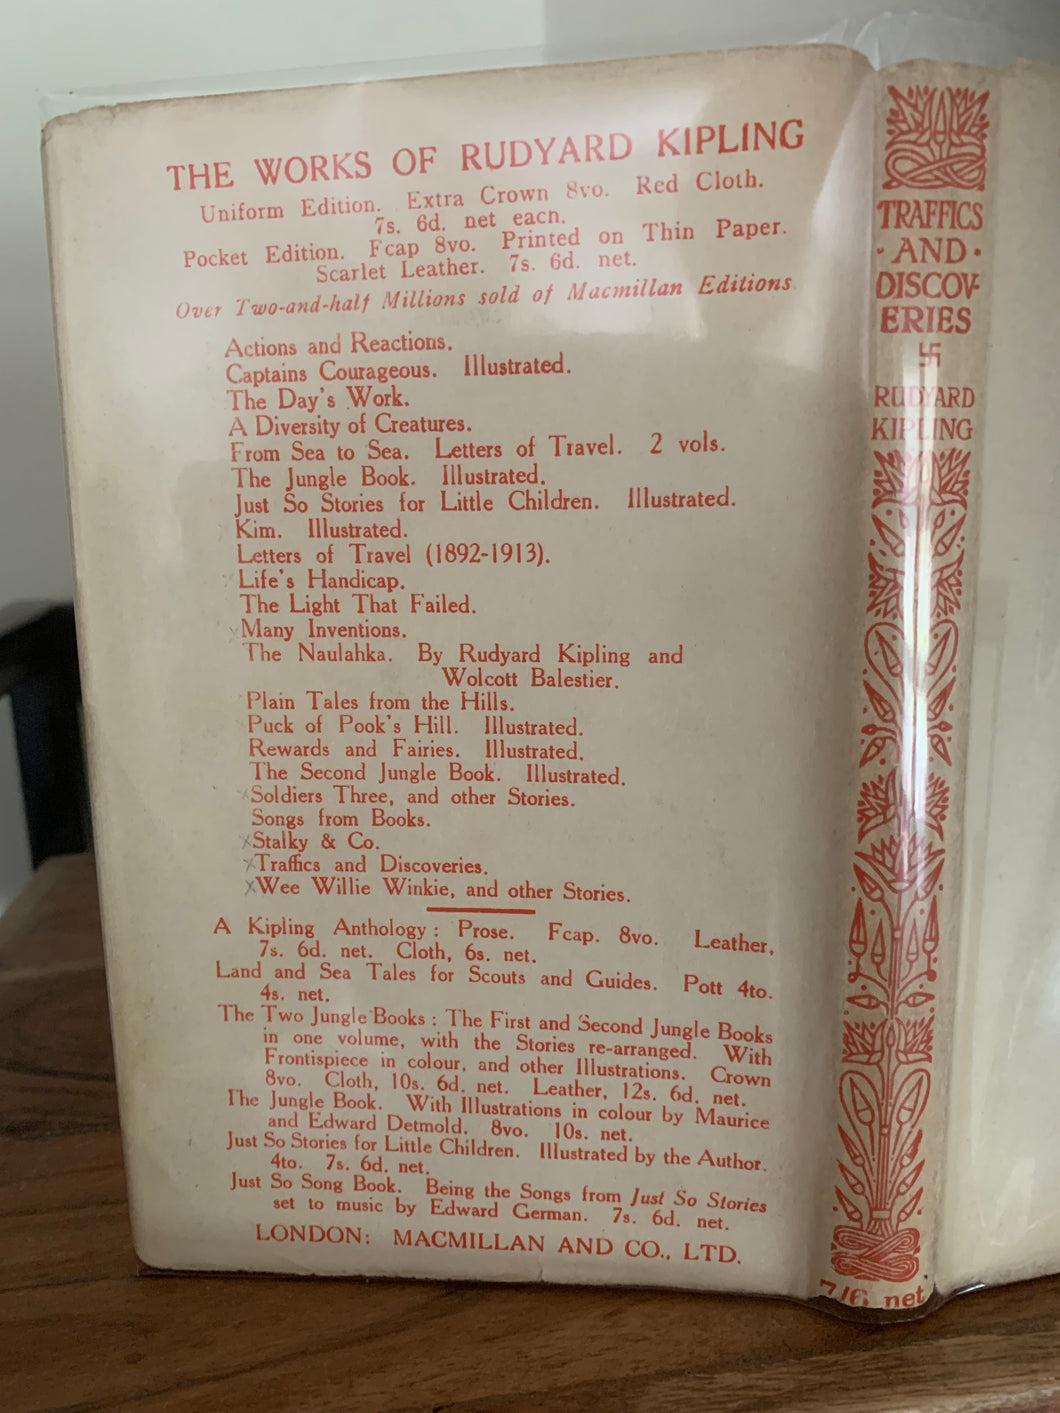 THE WORKS OF RUDYARD KIPLING
Uniform Edition. Extra Crown 8vo. Red Cloth.
7s. 6d. net each.
Pocket Edition. Fcap 8vo. Printed on Thin Paper.
Scarlet Leather. 7s. 6d. net.
Over Two-and-half Millions sold of Macmillan Editions
Actions and Reactions.
Captains Courageous. Illustrated.
The Day's Work.
A Diversity of Creatures.
From Sea to Sea. Letters of Travel. 2 vols.
The Jungle Book. Illustrated.
Just So Stories for Little Children. Illustrated.
Kim. Illustrated.
Letters of Travel (1892-1913).
Life's Handicap.
The Light That Failed.
Many Inventions.
The Naulahka. By Rudyard Kipling and
Wolcott Balestier.
Plain Tales from the Hills.
Puck of Pook's Hill. Illustrated.
Rewards and Fairies. Illustrated.
The Second Jungle Book. Illustrated.
Soldiers Three, and other Stories.
Songs from Books.
Stalky & Co.
Traffics and Discoveries.
Wee Willie Winkie, and other Stories.
A Kipling Anthology: Prose. Fcap. 8vo. Leather,
7s. 6d. net. Cloth, 6s. net.
Land and Sea Tales for Scouts and Guides. Pott 4to.
4s. net.
The Two Jungle Books: The First and Second Jungle Books
in one volume, with the Stories re-arranged. With
Frontispiece in colour, and other Illustrations. Crown
8vo. Cloth, 10s. 6d. net. Leather, 12s. 6d. net.
The Jungle Book. With Illustrations in colour by Maurice
and Edward Detmold. 8vo. 10s. net.
Just So Stories for Little Children. Illustrated by the Author.
4to. 7s. 6d. net.
Just So Song Book. Being the Songs from Just So Stories
set to music by Edward German. 7s. 6d. net.
LONDON: MACMILLAN AND CO., LTD.
TRAFFICS
· AND ·
DISCOV-
ERIES
卐
RUDYARD
KIPLING
7/6 net